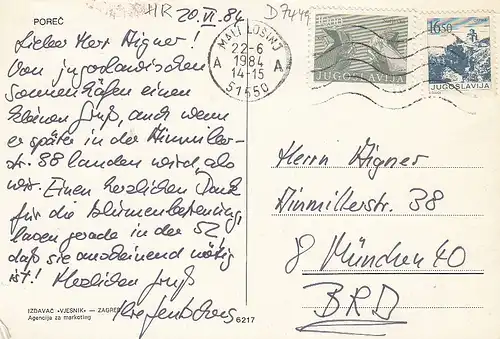 HR
20.VI.84
D7449
POREČ
Lieber Herr Aigner!
Von jugoslawischen
Sonnenhäfen einen
kleinen Gruß, auch wenn
er später in der Ainmiller-
str. 88 landen wird, als
wir. Einen herzlichen Dank
für die Blumenbetreuung,
lasen gerade in der SZ,
daß sie anscheinend nötig
ist! Herzlichen Gruß
IZDAVAČ »VJESNIK« – ZAGREB
Agencija za marketing
6217
MALI LOŠINJ
22-6
A 1984 A
14-15
51550
10.00
JUGOSLAVIJA
16.50
JUGOSLAVIJA
Herrn Aigner
Ainmillerstr. 38
8 München 40
BRD